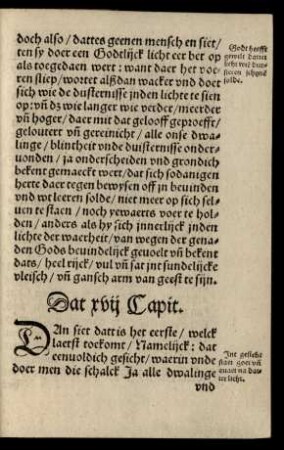 doch also / dattes geenen mensch en siet /
ten sy doer een Godelijck licht eer her op
als toegedaen wert: want daer het voe-
ren sliep / wortet alszdan wacker vnd doet
sich wie de dusternisse jnden lichte te sien
op: vñ dz wie langer wie verder / meerder
vñ hoger / daer mit dat gelooff geproefft /
geloutert vñ gereinicht / alle onse dwa-
linge / blintheit vnde duisternisse onder-
uonden / ja onderscheiden vnd grondich
bekent gemaeckt wert / dat sich sodanigen
herte daer tegen bewysen off jn beuinden
vnd wt leeren solde / niet meer op sich sel-
uen te staen / noch yerwaerts voer te hol-
den / anders als hy sich jnnerlijck jnden
lichte der waerheit / van wegen der gena-
den Gods beuindelijck geuoelt vñ bekent
dats / heel rijck / vul vñ sat jnt sundelijcke
vleisch / vñ gansch arm van geest te sijn.
Godt heefft
gewilt datter
licht wt duy-
steren schynē
solde.
Dat xvij Capit.
DAn siet datt is het eerste / welck
laerst toekomt / Namelijck: dat
eenuoldich gesicht / waerin vnde
doer men die schalck Ja alle dwalinge
vnd
Int gesicht
staet